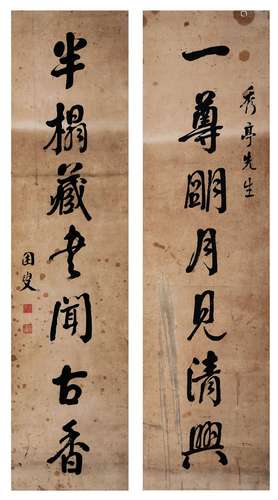 秀亭先生
一尊明月見清興
半榻藏書聞古香
叟